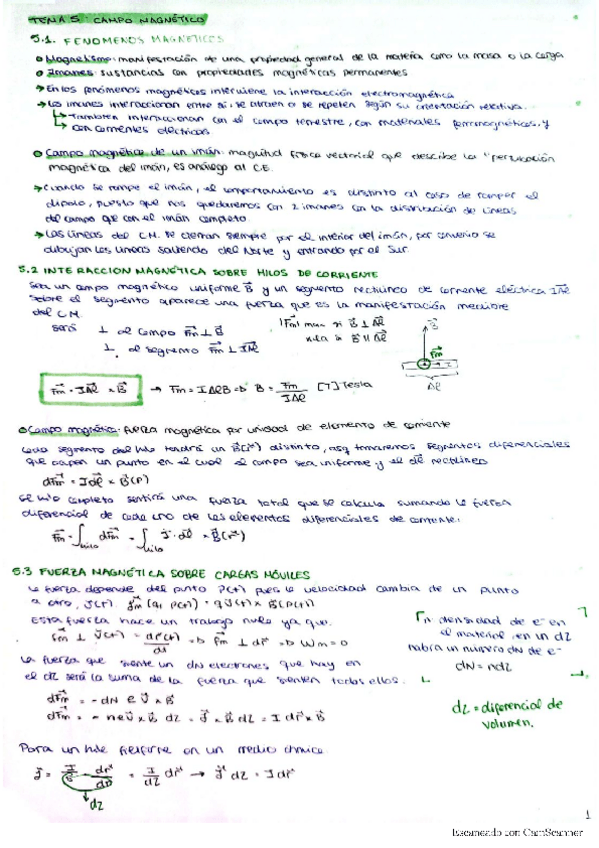 TEMA 5: CAMPO MAGNÉTICO
5.1. FENOMENOS MAGNETICOS
Magnetismo: manifestación de una propiedad general de la materia como la masa o la carga
Imanes: sustancias con propiedades magnéticas permanentes
→ En los fenómenos magnéticos interviene la interacción electromagnética
→ Los imanes interaccionan entre sí: se atraen o se repelen según su orientación relativa.
↳ También interaccionan con el campo terrestre, con materiales ferromagnéticos y
↳ con corrientes eléctricas.
Campo magnético de un imán: magnitud física vectorial que describe la "perturbación
magnética del imán, es análogo al C.E.
→ Cuando se rompe el imán, el comportamiento es distinto al caso de romper el
dipolo, puesto que nos quedaremos con 2 imanes con la distribución de líneas
del campo que con el imán completo.
→ Las líneas del C.M. se cierran siempre por el interior del imán, por convenio se
dibujan las líneas saliendo del Norte y entrando por al Sur.
5.2 INTERACCION MAGNÉTICA SOBRE HILOS DE CORRIENTE
Sea un campo magnético uniforme B⃗ y un segmento rectilíneo de corriente eléctrica IΔℓ⃗
sobre el segmento aparece una fuerza que es la manifestación
del C.M.
será ⊥ al campo F⃗m ⊥ B⃗
⊥ al segmento F⃗m ⊥ IΔℓ⃗
|F⃗m| max si B⃗ ⊥ Δℓ⃗
nula si B⃗ ∥ Δℓ⃗
B⃗
F⃗m
Δℓ
F⃗m = IΔℓ⃗ × B⃗ → Fm = IΔℓB ⇒ B = Fm / IΔℓ [T] Tesla
Campo magnético: fuerza magnética por unidad de elemento de corriente
Cada segmento del hilo tendrá un B⃗(r⃗) distinto, asq tomaremos segmentos diferenciales
que ocupen un punto en el cual el campo sea uniforme y el dℓ⃗ rectilíneo
dF⃗m = Idℓ⃗ × B⃗(P)
El hilo completo sentirá una fuerza total que se calcula sumando la fuerza
diferencial de cada uno de los elementos diferenciales de corriente:
F⃗m = ∫hilo dF⃗m = ∫hilo I·dℓ⃗ × B⃗(r⃗)
5.3 FUERZA MAGNÉTICA SOBRE CARGAS MÓVILES
La fuerza depende del punto P(t) pues la velocidad cambia de un punto
a otro, v⃗(t). f⃗m (q, P(t)) = q v⃗(t) × B⃗(P(t))
Esta fuerza hace un trabajo nulo ya que:
f⃗m ⊥ v⃗(t) = dr⃗(t)/dt ⇒ f⃗m ⊥ dr⃗ ⇒ Wm = 0
n densidad de e⁻ en
el material, en un dZ
habrá un número dN de e⁻
dN = ndZ
La fuerza que siente un dN electrones que hay en
el dZ será la suma de la fuerza que sienten todos ellos.
dF⃗m = -dN e v⃗ × B⃗
dF⃗m = - n e v⃗ × B⃗ dZ = J⃗ × B⃗ dZ = I dr⃗ × B⃗
dZ = diferencial de
volumen.
Para un hilo filiforme en un medio óhmico:
J⃗ = I/S dr⃗/dr = I/dZ dr⃗ → J⃗ dZ = I dr⃗
dZ
1
Escaneado con CamScanner